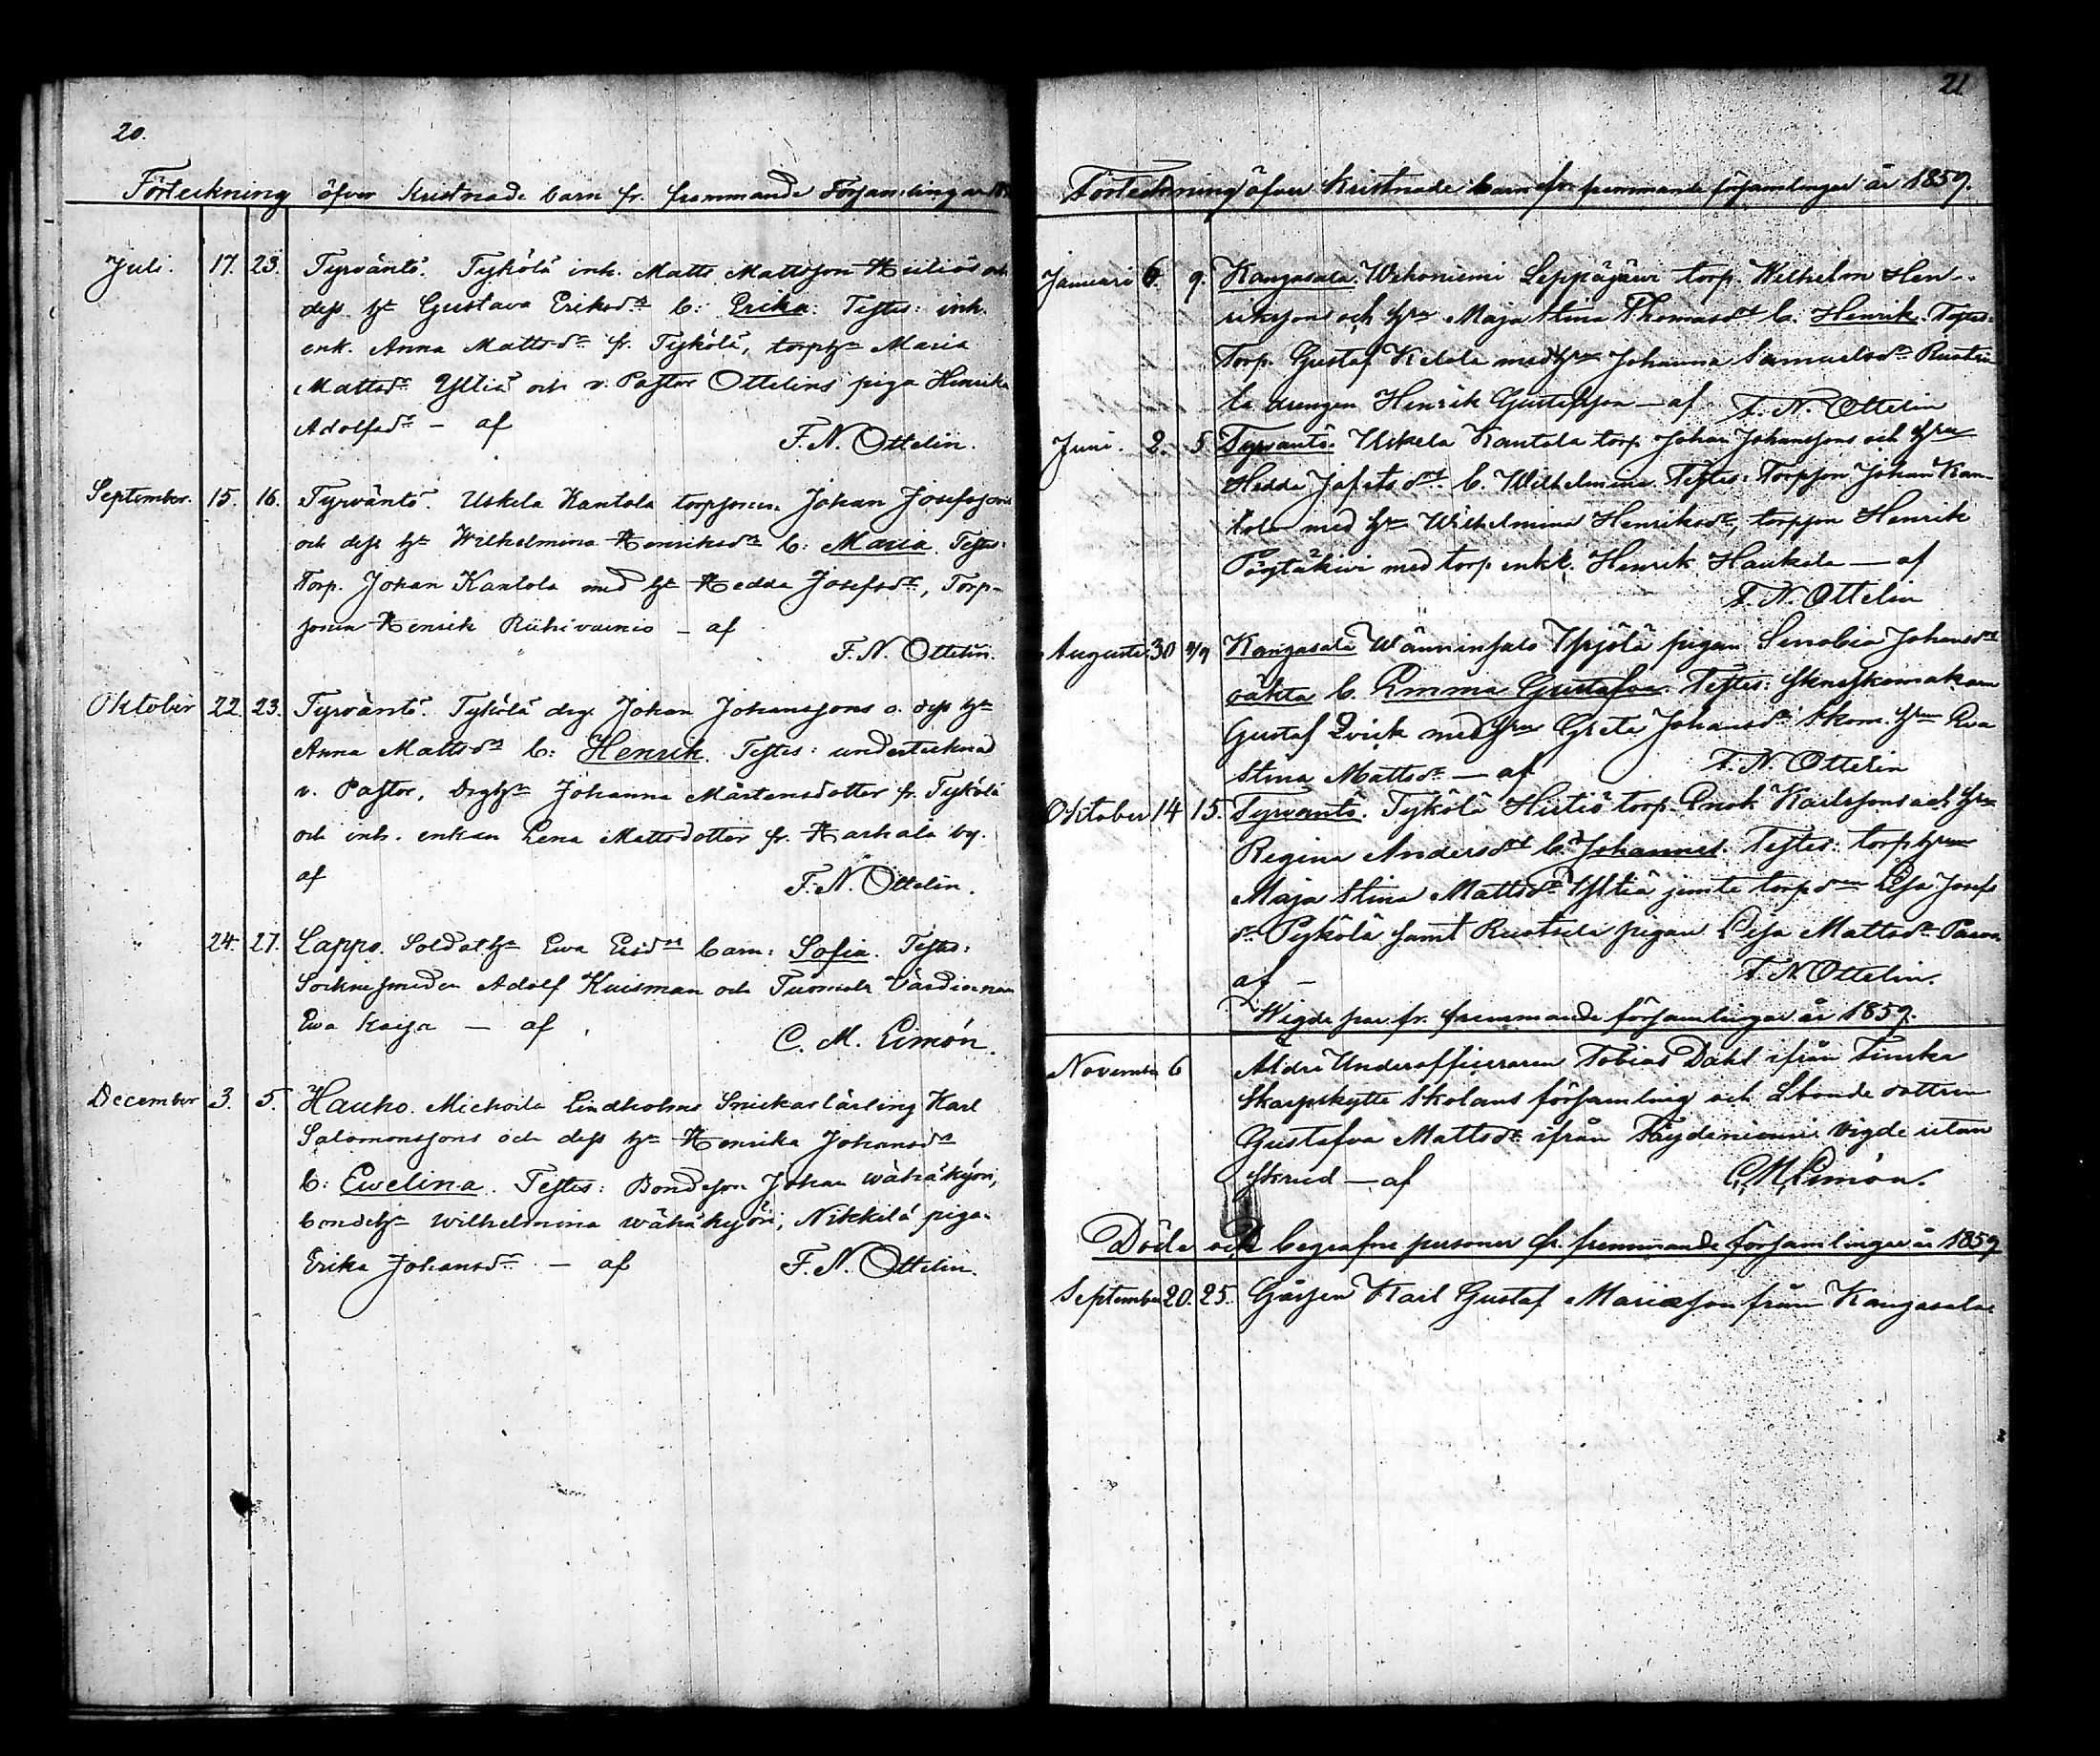 20.
Förteckning öfver Kristnade barn fr. frammande Församlingar
Juli. 17. 23. Tyrväntö. Tykölä inh. Matts Mattsson Hiiliös och
dess h: Gustava Eriksdr b: Erika. Testes: inh.
enk. Anna Mattsdr fr. Tykölä, torph: Maria
Mattsdr Yltiä och v. Pastor Ottelins piga Henrika
Adolfsdr – af
F. N. Ottelin.
September. 15. 16. Tyrväntö. Uskela Kantola torpsonen. Johan Josefssons
och dess h: Wilhelmina Henriksdr b: Maria. Testes:
Torp. Johan Kantola med h: Hedda Josefsdr, Torp-
sonen Henrik Riihivainio – af
F. N. Ottelin.
Oktober 22. 23. Tyrväntö. Tykölä drg. Johan Johanssons o. dess h:
Anna Mattsdr b: Henrik. Testes: undertecknad
v. Pastor, Drgh: Johanna Mårtensdotter fr. Tykölä
och inh. enkan Lena Mattsdotter fr. Harhala by.
af
F. N. Ottelin.
" 24. 27. Lappo. Soldath: Ewa Ersdr barn: Sofia. Testes:
Socknesmeden Adolf Kuisman och Tuomola Värdinnan
Ewa Kaisa – af
C. M. Limón.
December 3. 5. Hauho. Michoila Lindholms Snickarlärling Karl
Salomonssons och dess h: Henrika Johansdr
b: Ewelina. Testes: Bondeson Johan Wähäkyöri,
bondeh: Wilhelmina Wähäkyöri, Nikkilä pigan
Erika Johansdr – af F. N. Ottelin.
21
Förteckning öfver Kristnade barn från fremmande församlingar år 1859.
Januari 6. 9. Kangasala. Wehoniemi Leppäjärwi torp. Wilhelm Hen-
riksson och hru Maja Stina Thomasdr b. Henrik. Testes:
Torp. Gustaf Ketola med hru Johanna Samuelsdr Ruotsi
la drengen Henrik Gustafsson – af F. N. Ottelin
Juni. 2. 5. Tyrväntö. Uskela Kantola torp. Johan Johanssons och hru
Hedda Jafetsdr b. Wilhelmina. Testes: Torpson Johan Kan-
tola med hru Wilhelmina Henriksdr, torpson Henrik
Pöytäkivi med torp enkk. Henrik Haukila – af
F. N. Ottelin
Augusti 30 4/9 Kangasala Wänninsalo Yrjölä pigan Senobia Johansdr
oäkta b. Emma Gustafva. Testes: Sknskomakaren
Gustaf Qvick med hru Greta Johansdr Skom. hrun Eva
Stina Mattsdr – af F. N. Ottelin
Oktober 14 15. Tyrväntö. Tykölä Hirtiö torp. Enok Karlssons och hru
Regina Andersdr b. Johannes. Testes: torp hrun
Maja Stina Mattsdr Yltiä jemte torp drn Lisa Josefs
dr Pykölä samt Ruotsila pigan Lisa Mattsdr Paavo
af – F. N. Ottelin.
Wigde par fr. fremmande församlingar år 1859.
November 6 Äldre Underofficeraren Tobias Dahl ifrån Finska
Skarpskytte Skolans församling och Lbonde dottren
Gustafva Mattsdr ifrån Täydeniemi vigde utan
Skrud – af C. M. Limón.
Döde och begrafne personer fr. fremmande församlingar år 1859
September 20. 25. Gåssen Karl Gustaf Mariæson från Kangasala